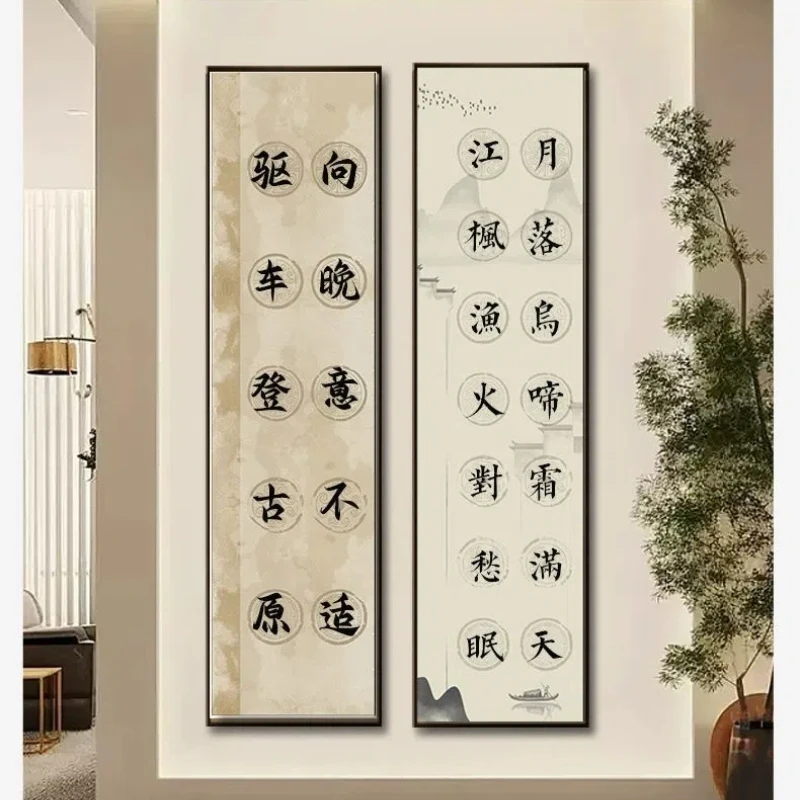 月落烏啼霜滿天
江楓漁火對愁眠
向晚意不适
驱车登古原